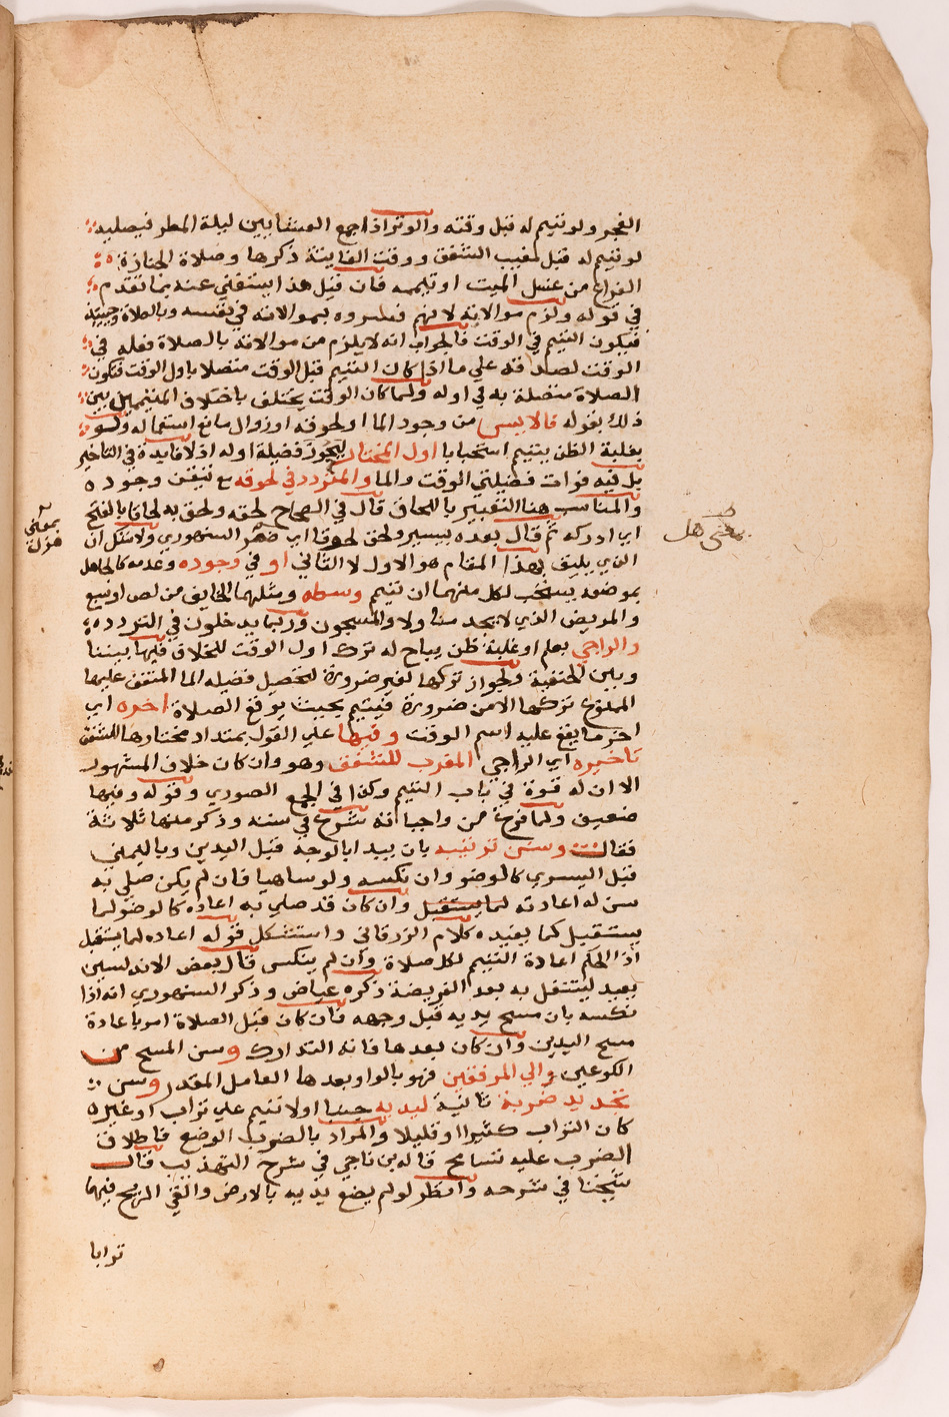 الفجر ولو تيمم له قبل وقته والوتر اذا جمع العشا بين ليلة المطر فيصليه
لو تيمم له قبل مغيب الشفق ووقت الفايتة ذكرها وصلاة الجنازة
الفراغ من غسل الميت او تيممه فان قيل هذا يستغني عنه بما تقدم
في قوله ولزم موالاته لانهم فسروه بموالاته في نفسه وبالصلاة وحينيذ
فيكون التيمم في الوقت فالجواب انه لا يلزم من موالاته بالصلاة فعله في
الوقت لصدقه علي ما اذا كان التيمم قبل الوقت متصلا باول الوقت فتكون
الصلاة متصلة به في اوله ولما كان الوقت يختلف باختلاف المتيممين بين
ذلك بقوله فالايس من وجود الما او لحوقه او زوال مانع استعماله ولو
بغلبة الظن يتيمم استحبابا اول المختار ليحوز فضيلة اوله اذ لا فايدة في التاخير
بل فيه فوات فضيلتي الوقت والما والمتردد في لحوقه مع تيقن وجوده
والمناسب هنا التعبير باللحاق قال في الصحاح لحقه ولحق به لحاقا بالفتح
اي ادركه ثم قال بعده بيسير ولحق لحوقا اي ضمر السنهوري ولا شك ان
الذي يليق بهذا المقام هو الاول لا الثاني او في وجوده وعدمه كالجاهل
بموضعه يستحب لكل منهما ان تيمم وسطه ومثلهما الخايف من لص او سبع
والمريض الذي لا يجد مناولا والمسجون وربما يدخلون في التردد
والراجي بعلم او غلبة ظن يباح له ترك اول الوقت للخلاف فيها بيننا
وبين الحنفية ولجواز تركها لغير ضرورة لتحصيل فضيلة الما المتفق عليها
الممنوع تركها الا من ضرورة فيتيمم بحيث يوقع الصلاة اخره اي
اخر ما يقع عليه اسم الوقت وفيها علي القول بمتداد مختارها للشفق
تاخيره اي الراجي المغرب للشفق وهو وان كان خلاف المشهور
الا ان له قوة في باب التيمم وكذا في الجمع الصوري وقوله وفيها
ضعيف ولما فرغ من واجباته شرع في سننه وذكر منها ثلاثة
فقال وسن ترتيبه بان يبدا بالوجه قبل اليدين وباليمني
قبل اليسري كالوضو وان نكسه ولو ساهيا فان لم يكن صلي به
سن له اعادته لما يستقبل وان كان قد صلي به اعاده كالوضو لما
يستقبل كما يفيده كلام الزرقاني واستشكل قوله اعاده لما يستقبل
اذ الحكم اعادة التيمم لكل صلاة وان لم ينكس قال بعض الاندلسين
يعيد ليتنفل به بعد الفريضة ذكره عياض وذكر السنهوري انه اذا
نكسه بان مسح يديه قبل وجهه فان كان قبل الصلاة امر باعادة
مسح اليدين وان كان بعدها فاته التدارك وسن المسح من
الكوعين والي المرفقين فهو بالواو بعدها العامل المقدر وسن
تجديد ضربة ثانية ليديه جنبا اولا تيمم علي تراب او غيره
كان التراب كثيرا او قليلا والمراد بالضرب الوضع فاطلاق
الضرب عليه تسامح قاله بن ناجي في شرح التهذيب قال
شيخنا في شرحه وانظر لو لم يضع يديه بالارض والقي الريح فيهما
ترابا